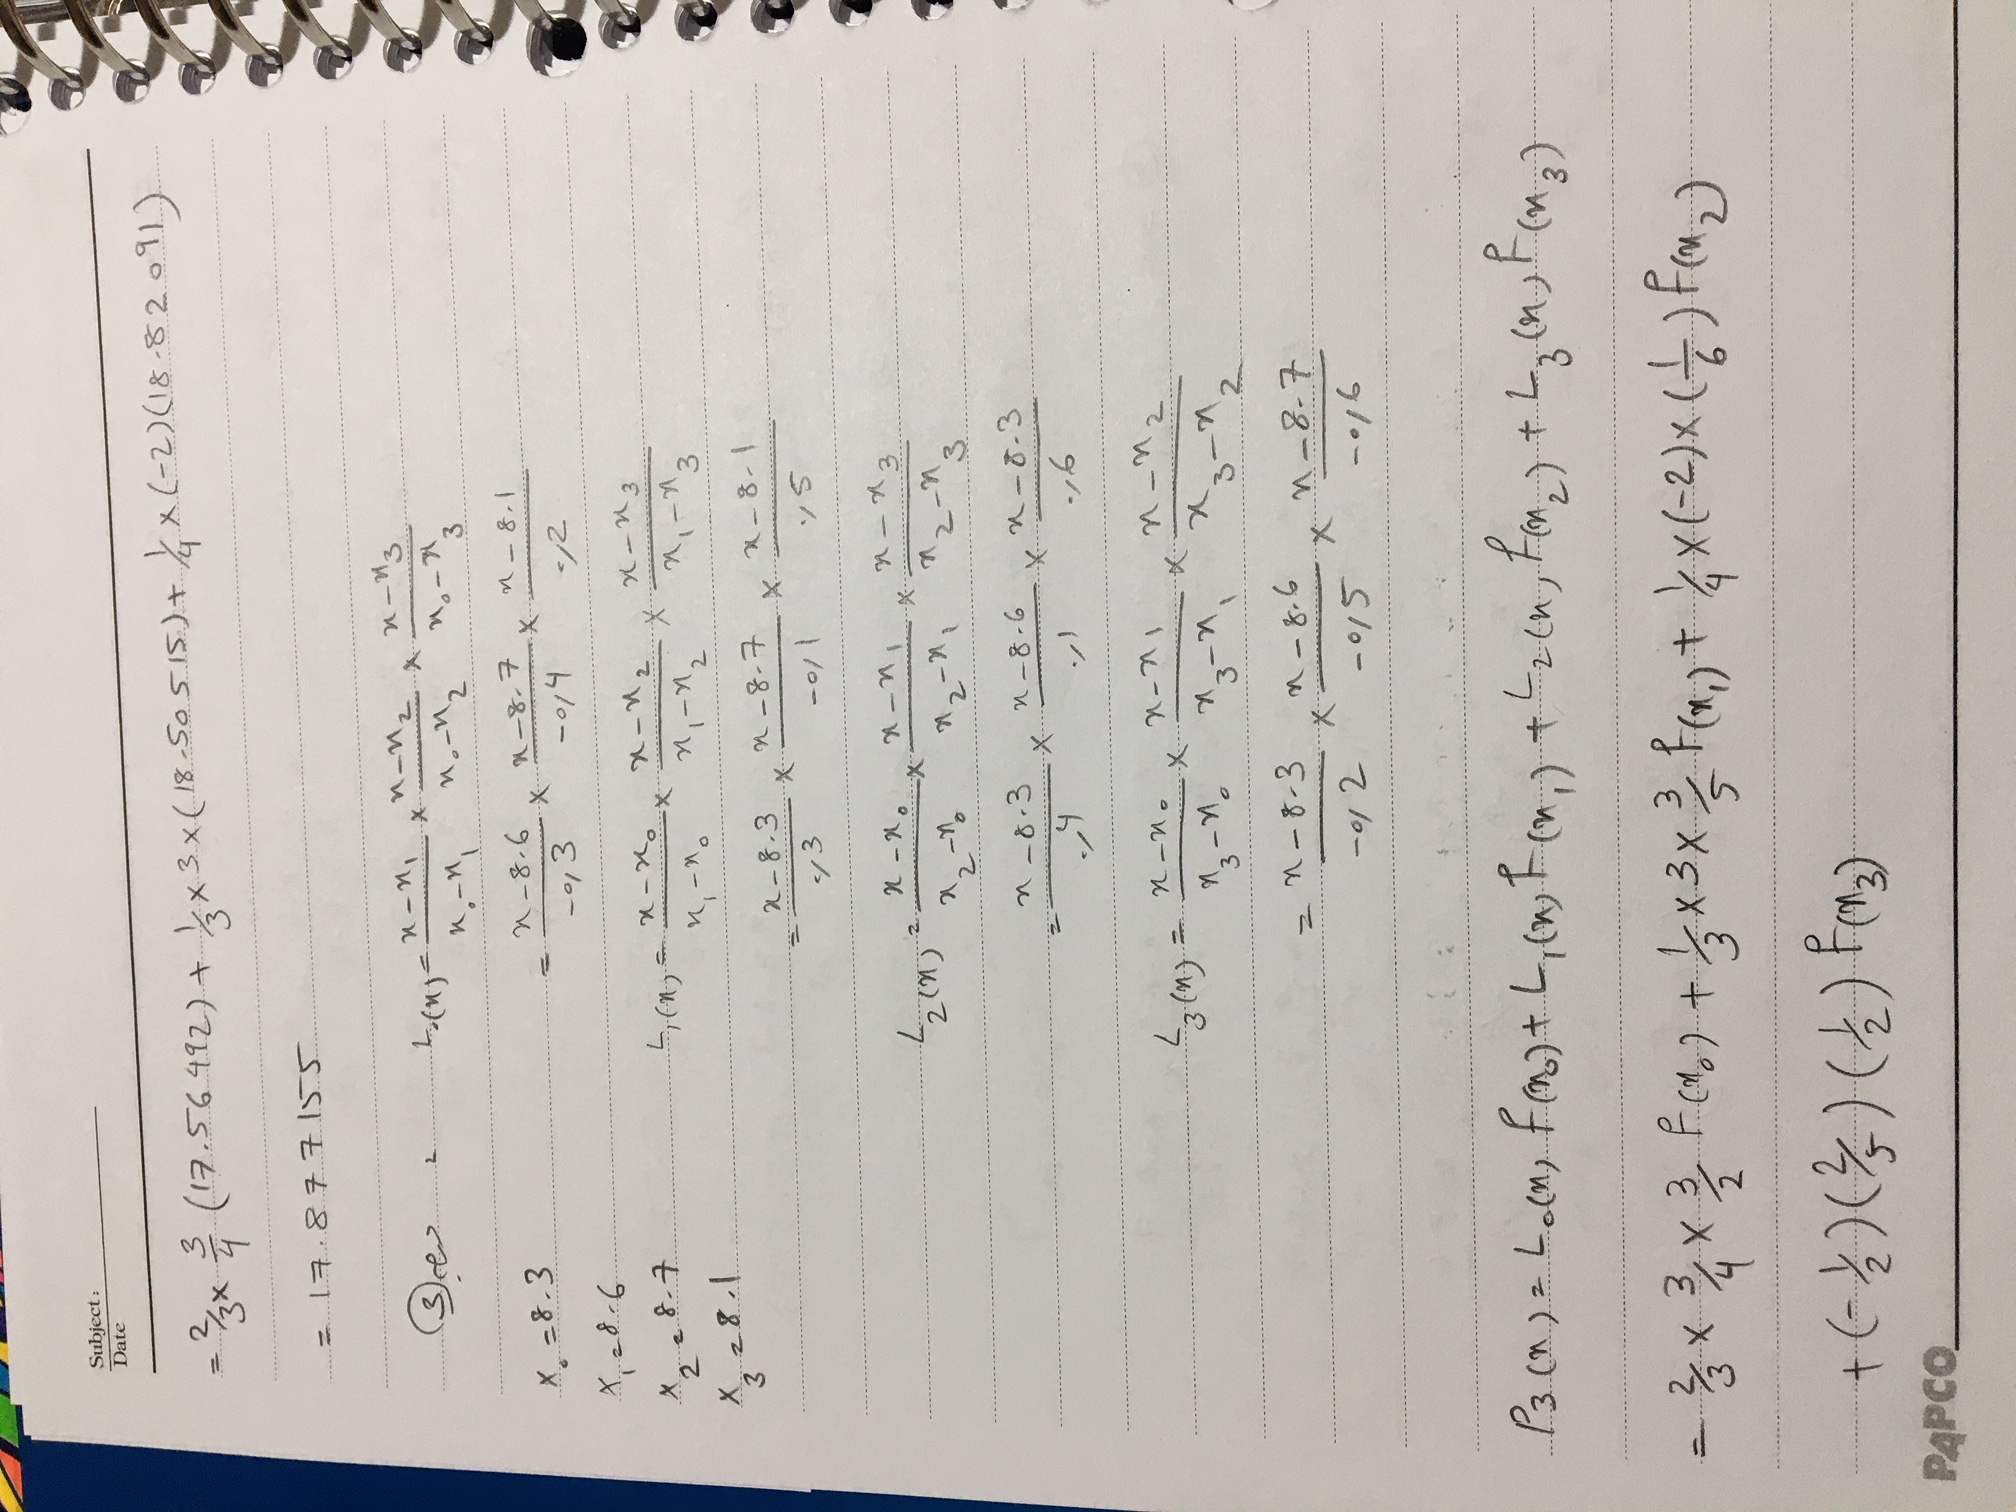 Subject:
Date
= 2/3 × 3/4 (17.56492) + 1/3 × 3 × (18.50515) + 1/4 × (-2)(18.82091)
= 17.877155
L₀(x) = x-x₁/x₀-x₁ × x-x₂/x₀-x₂ × x-x₃/x₀-x₃
x₀ = 8.3
= x-8.6/-0,3 × x-8.7/-0,4 × x-8.1/0,2
x₁ = 8.6
x₂ = 8.7
L₁(x) = x-x₀/x₁-x₀ × x-x₂/x₁-x₂ × x-x₃/x₁-x₃
x₃ = 8.1
= x-8.3/0,3 × x-8.7/-0,1 × x-8.1/0,5
L₂(x) = x-x₀/x₂-x₀ × x-x₁/x₂-x₁ × x-x₃/x₂-x₃
= x-8.3/0,4 × x-8.6/0,1 × x-8.3/0,6
L₃(x) = x-x₀/x₃-x₀ × x-x₁/x₃-x₁ × x-x₂/x₃-x₂
= x-8.3/-0,2 × x-8.6/-0,5 × x-8.7/-0,6
P₃(x) = L₀(x) f(x₀) + L₁(x) f(x₁) + L₂(x) f(x₂) + L₃(x) f(x₃)
= 2/3 × 3/4 × 3/2 f(x₀) + 1/3 × 3 × 3/5 f(x₁) + 1/4 × (-2) × (1/6) f(x₂)
+ (-1/2)(2/5)(1/2) f(x₃)
PAPCO